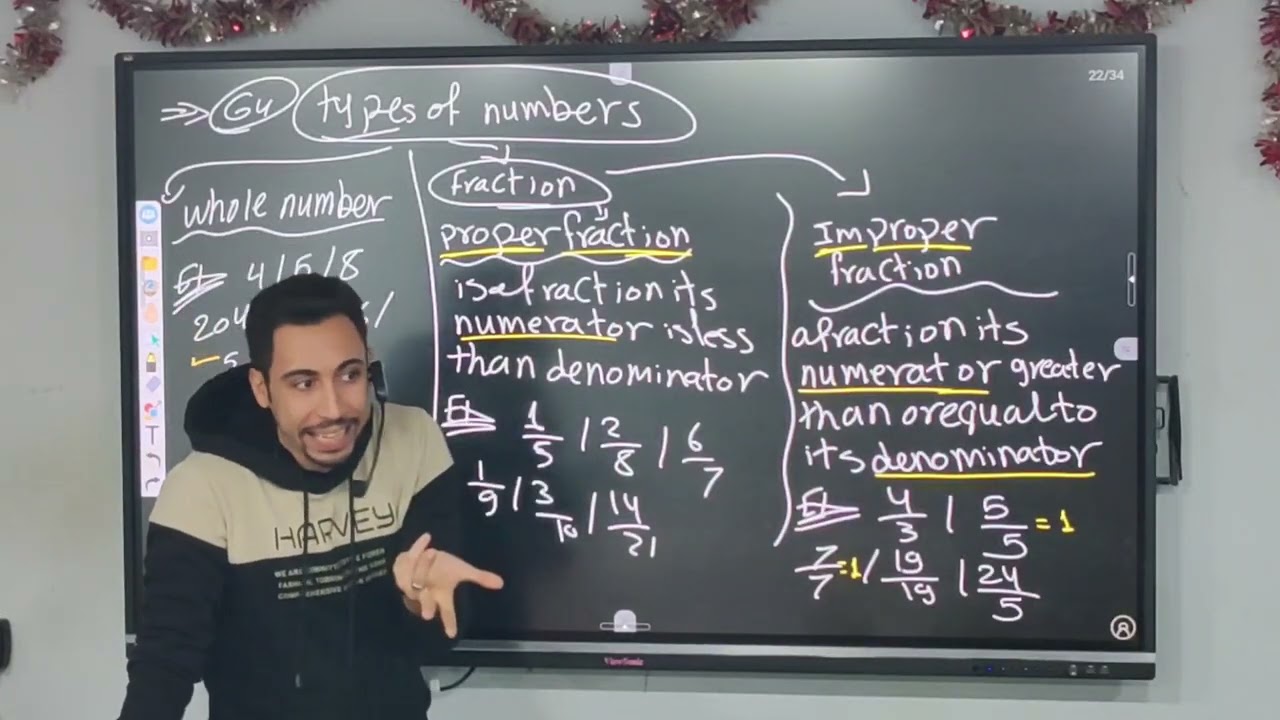 22/34
G4 types of numbers
whole number
Ex 4 / 5 / 8
204
5
fraction
proper fraction
is a fraction its
numerator is less
than denominator
Ex 1/5 / 2/8 / 6/7
1/9 / 3/10 / 14/21
Improper
fraction
a fraction its
numerator greater
than or equal to
its denominator
Ex 4/3 | 5/5 = 1
7/7 = 1 / 19/19 | 24/5
T
HARVEY
ViewSonic